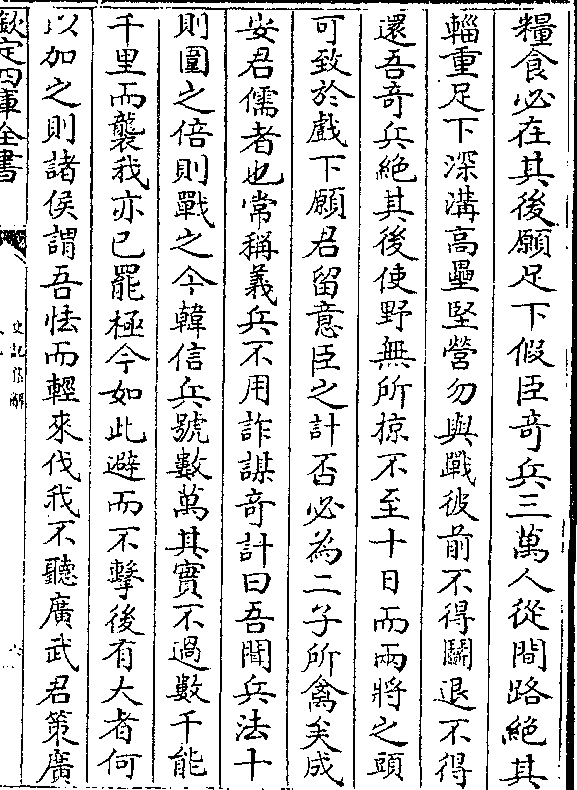 糧食必在其後願足下假臣奇兵三萬人從間路絶其
輜重足下深溝高壘堅營勿與戰彼前不得鬭退不得
還吾奇兵絶其後使野無所掠不至十日而兩將之頭
可致於戲下願君留意臣之計否必為二子所禽矣成
安君儒者也常稱義兵不用詐謀奇計曰吾聞兵法十
則圍之倍則戰之今韓信兵號數萬其實不過數千能
千里而襲我亦已罷極今如此避而不擊後有大者何
以加之則諸侯謂吾怯而輕來伐我不聽廣武君策廣
欽定四庫全書
史記集解